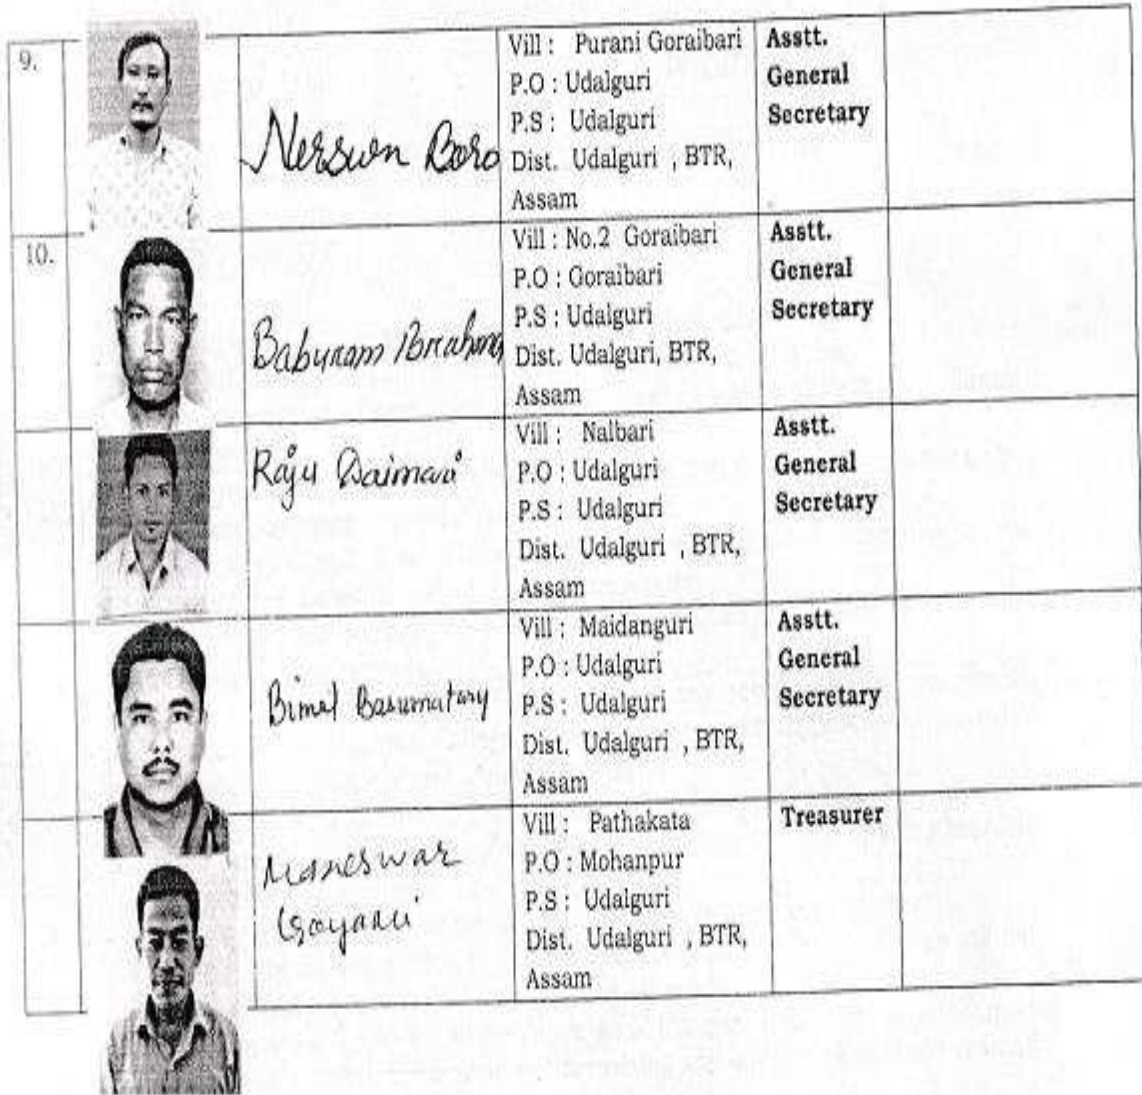 9.
Nerswn Boro
Vill : Purani Goraibari
P.O : Udalguri
P.S : Udalguri
Dist. Udalguri , BTR,
Assam
Asstt.
General
Secretary
10.
Baburam Brahma
Vill : No.2 Goraibari
P.O : Goraibari
P.S : Udalguri
Dist. Udalguri, BTR,
Assam
Asstt.
General
Secretary
Raju Daimari
Vill : Nalbari
P.O : Udalguri
P.S : Udalguri
Dist. Udalguri , BTR,
Assam
Asstt.
General
Secretary
Bimal Basumatary
Vill : Maidanguri
P.O : Udalguri
P.S : Udalguri
Dist. Udalguri , BTR,
Assam
Asstt.
General
Secretary
Maneswar
Goyari
Vill : Pathakata
P.O : Mohanpur
P.S : Udalguri
Dist. Udalguri , BTR,
Assam
Treasurer